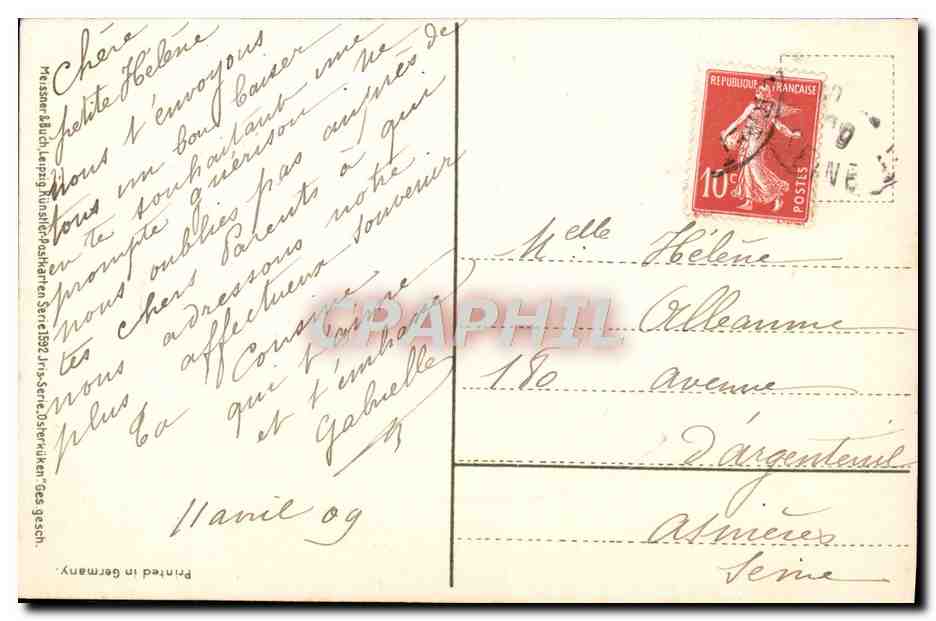 Chère
petite Hélène
Nous t'envoyons
tous un bon baiser
en te souhaitant une
prompte guérison. Ne
nous oublies pas auprès de
tes chers Parents à qui
nous adressons notre
plus affectueux souvenir
Ta Cousine
qui t'aime
et t'embrasse
Gabrielle
11 avril 09
Meissner & Buch, Leipzig. Künstler-Postkarten Serie 1592 Jris-Serie „Osterküken." Ges. gesch.
Printed in Germany.
REPUBLIQUE FRANCAISE
10c
POSTES
Melle Hélène
Alleaume
180 avenue
d'Argenteuil
Asnières
Seine
CPAPHIL